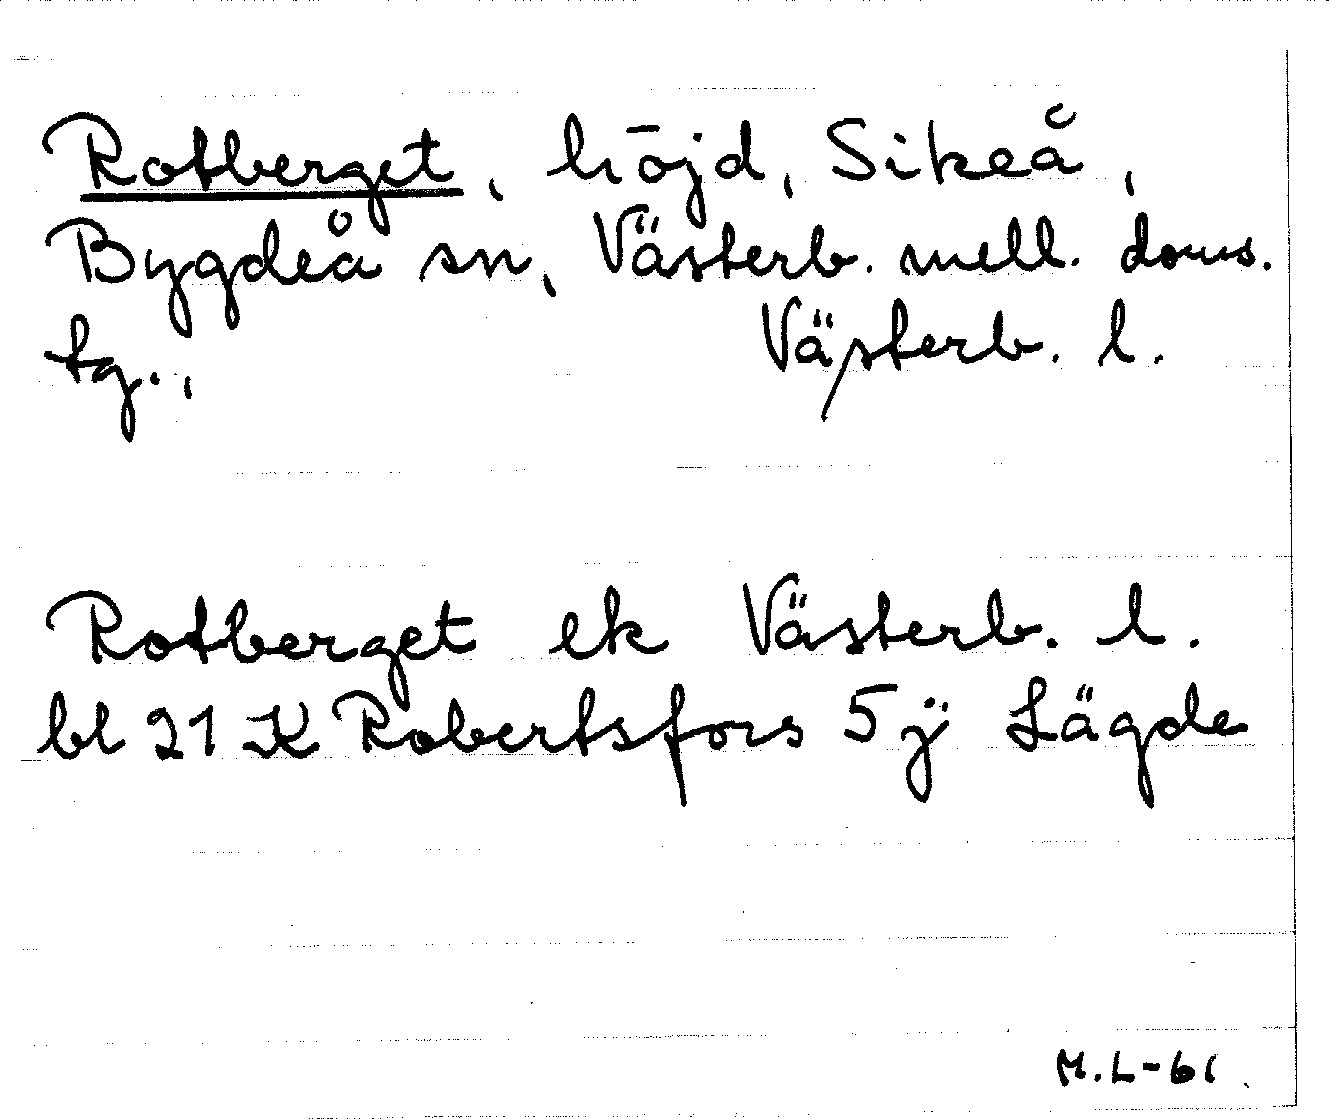 Rotberget, höjd, Sikeå,
Bygdeå sn, Västerb. mell. doms.
tg., Västerb. l.
Rotberget ek Västerb. l.
bl 21 K Robertsfors 5 j Lägde
M.L-61